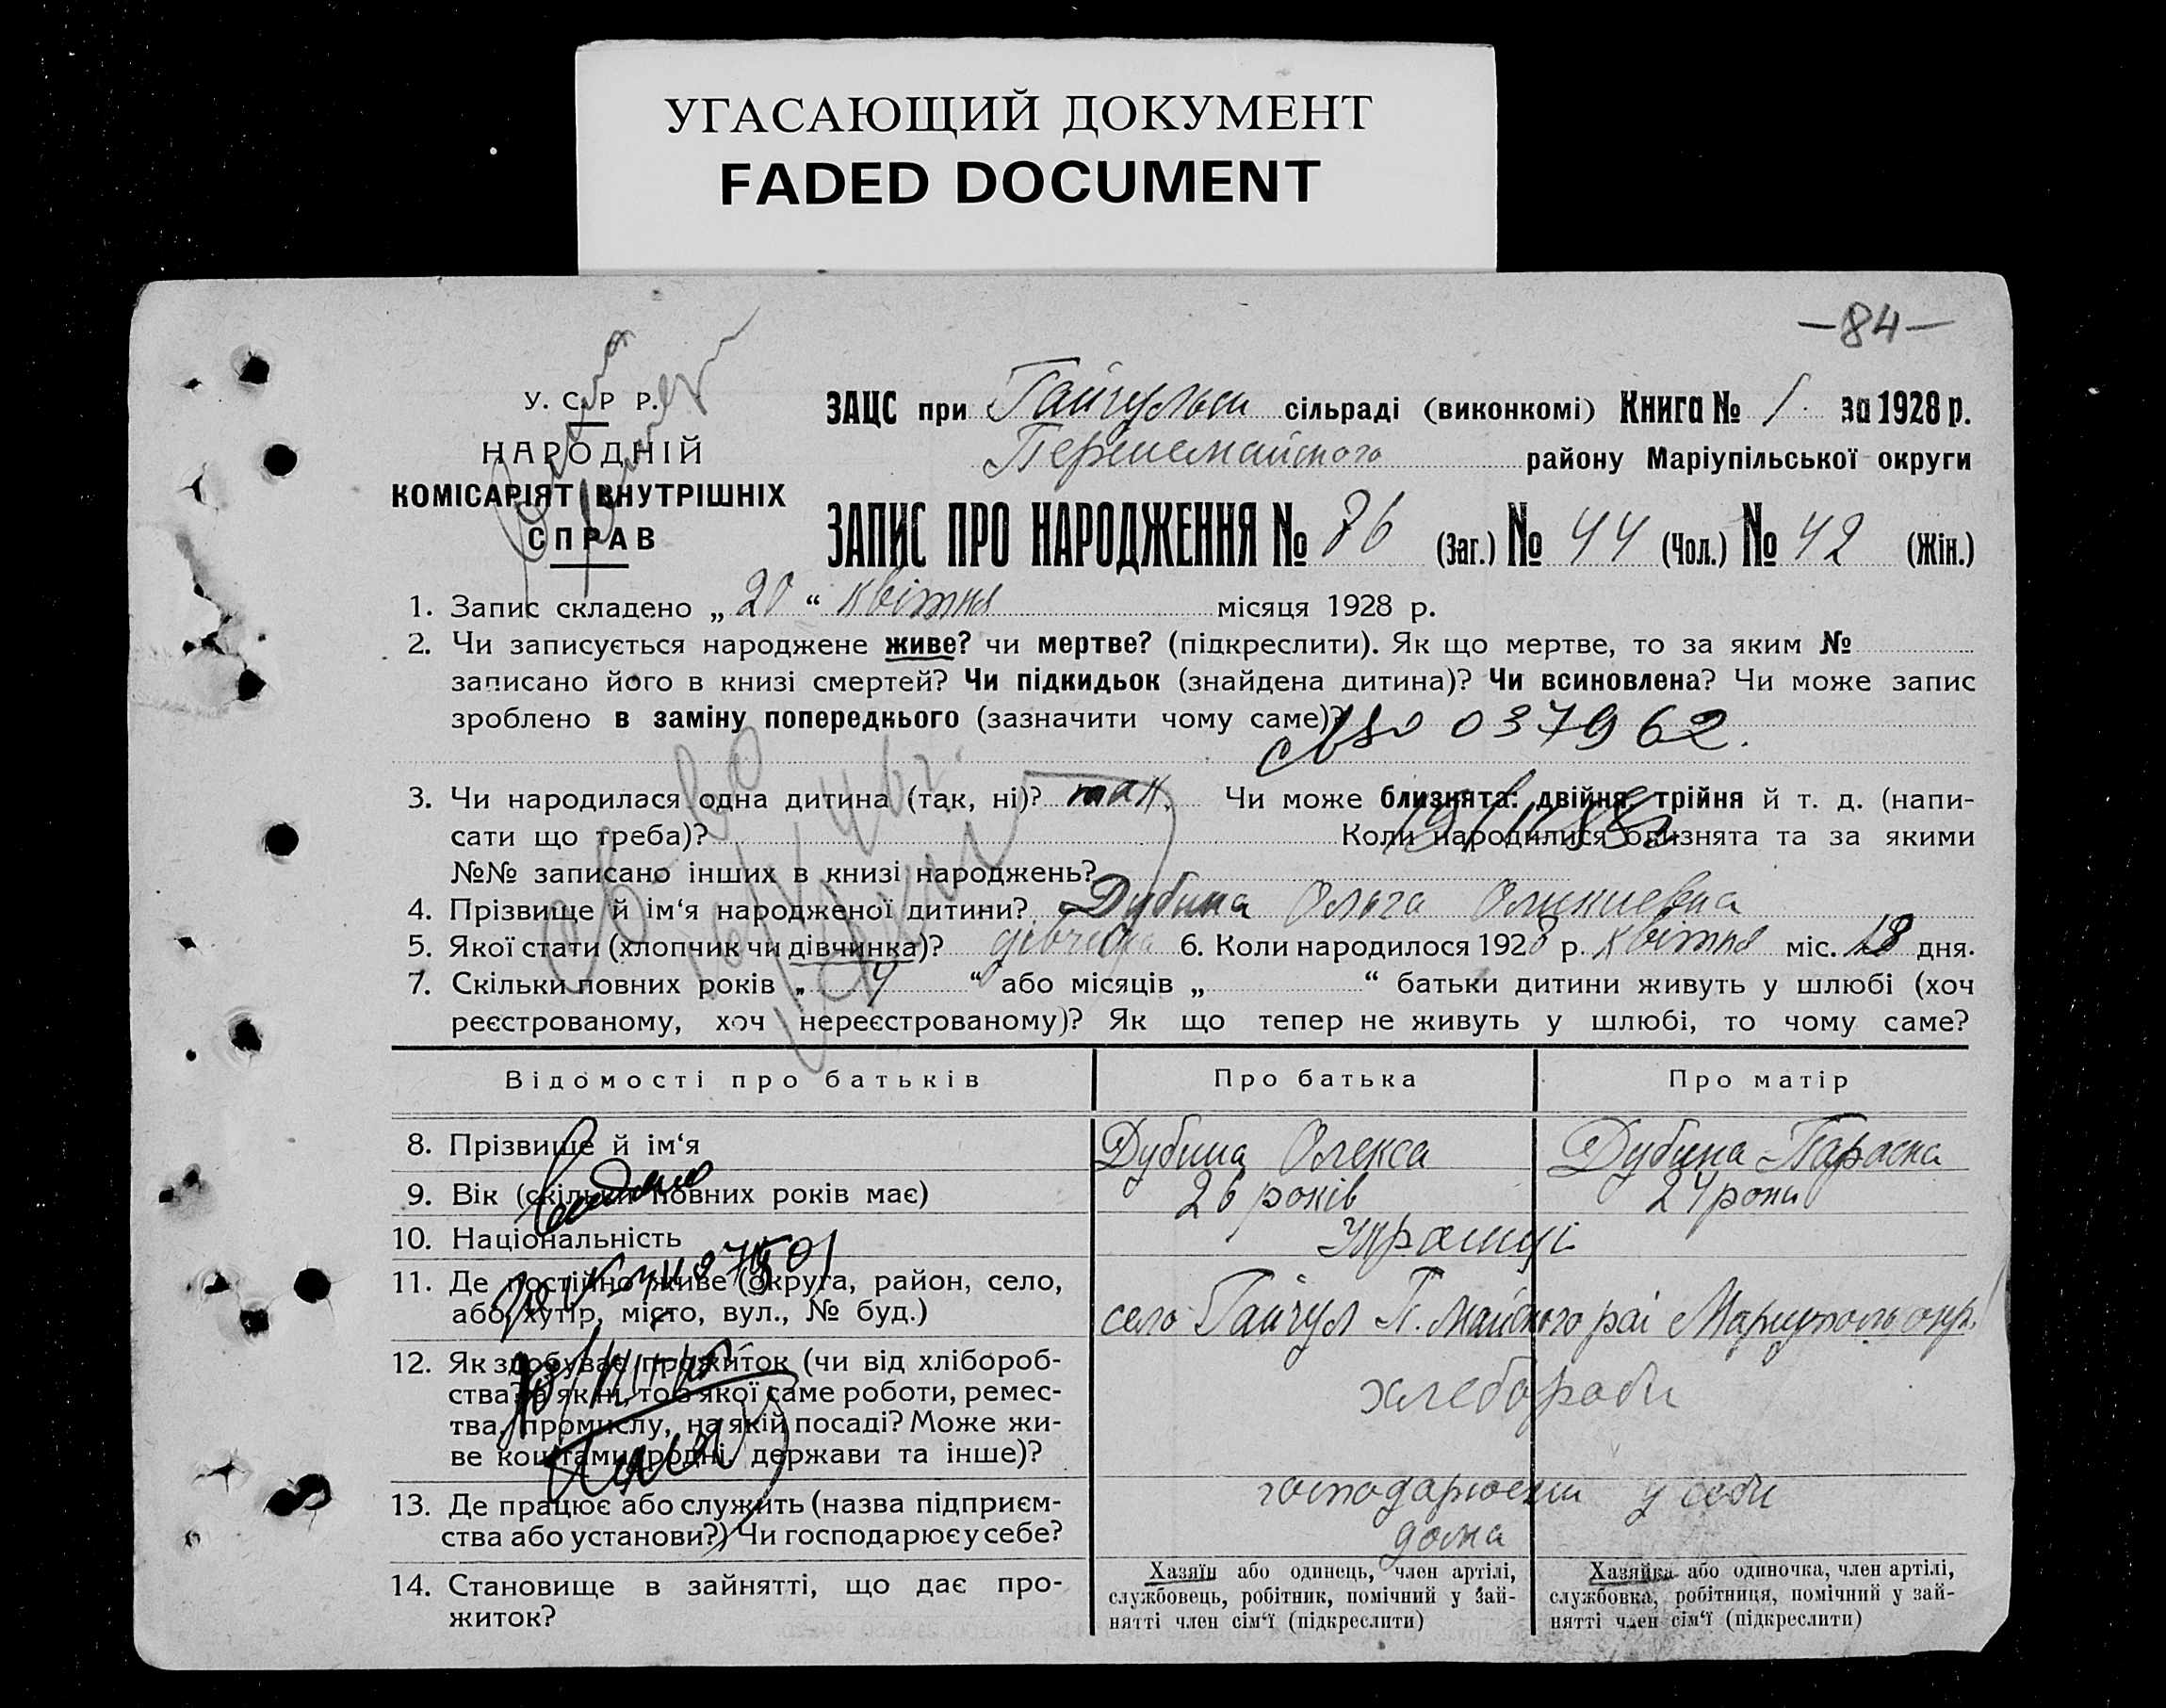 УГАСАЮЩИЙ ДОКУМЕНТ
FADED DOCUMENT
—84—
У. С. Р Р.
НАРОДНІЙ
КОМІСАРІЯТ ВНУТРІШНІХ
СПРАВ
ЗАЦС при Гайчульськ сільраді (виконкомі) Книга № 1. за 1928 р.
Першемайського району Маріупільської округи
ЗАПИС ПРО НАРОДЖЕННЯ № 86 (Заг.) № 44 (Чол.) № 42 (Жін.)
1. Запис складено „ 20 “ квітня місяця 1928 р.
2. Чи записується народжене живе? чи мертве? (підкреслити). Як що мертве, то за яким №
записано його в книзі смертей? Чи підкидьок (знайдена дитина)? Чи всиновлена? Чи може запис
зроблено в заміну попереднього (зазначити чому саме)?
037962.
3. Чи народилася одна дитина (так, ні)? так. Чи може близнята: двійня, трійня й т. д. (напи-
сати що треба)? Коли народилися близнята та за якими
№№ записано інших в книзі народжень?
4. Прізвище й ім‘я народженої дитини? Дубина Ольга
5. Якої стати (хлопчик чи дівчинка)? дівчина 6. Коли народилося 1928 р. квітня міс. 18 дня.
7. Скільки повних років „ 4 “ або місяців „ “ батьки дитини живуть у шлюбі (хоч
реєстрованому, хоч нереєстрованому)? Як що тепер не живуть у шлюбі, то чому саме?
Відомості про батьків Про батька Про матір
8. Прізвище й ім‘я Дубина Олекса Дубина Параска
9. Вік (скільки повних років має) 26 років 24 роки
10. Національність Українці
11. Де постійно живе (округа, район, село,
або хутір, місто, вул., № буд.) село Гайчул П. Майского рай Мариуполь окр.
12. Як здобуває прожиток (чи від хлібороб-
ства? а як ні, то з якої саме роботи, ремес-
тва, промислу, на якій посаді? Може жи-
ве коштами родні, держави та інше)?
хлебороби
13. Де працює або служить (назва підприєм-
ства або установи?) Чи господарює у себе?
у себи
дома
14. Становище в зайнятті, що дає про-
житок?
Хазяїн або одинець, член артілі,
службовець, робітник, помічний у зай-
нятті член сім‘ї (підкреслити)
Хазяйка або одиночка, член артілі,
службовка, робітниця, помічний у зай-
нятті член сім‘ї (підкреслити)